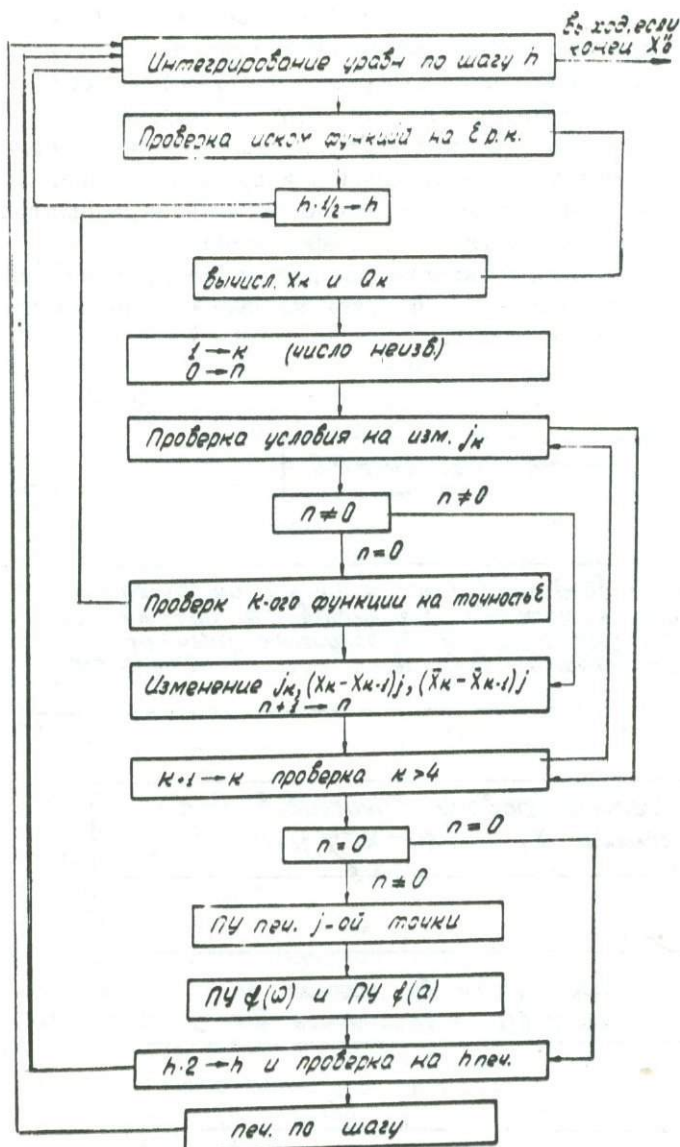 Выход, если
конец X"o
Интегрирование уравн по шагу h
Проверка иском функций на ε р.к.
h·1/2→h
Вычисл. Xк и Qк
1→к (число неизв.)
0→n
Проверка условия на изм. jк
n≠0
n≠0
n=0
Проверк К-ого функции на точность ε
Изменение jк, (Xк-Xк-1)j, (X̄к-X̄к-1)j
n+1→n
к+1→к проверка к>4
n=0
n=0
n≠0
ПУ печ. j-ой точки
ПУ ȼ(ω) и ПУ ȼ(a)
h·2→h и проверка на h печ.
печ. по шагу